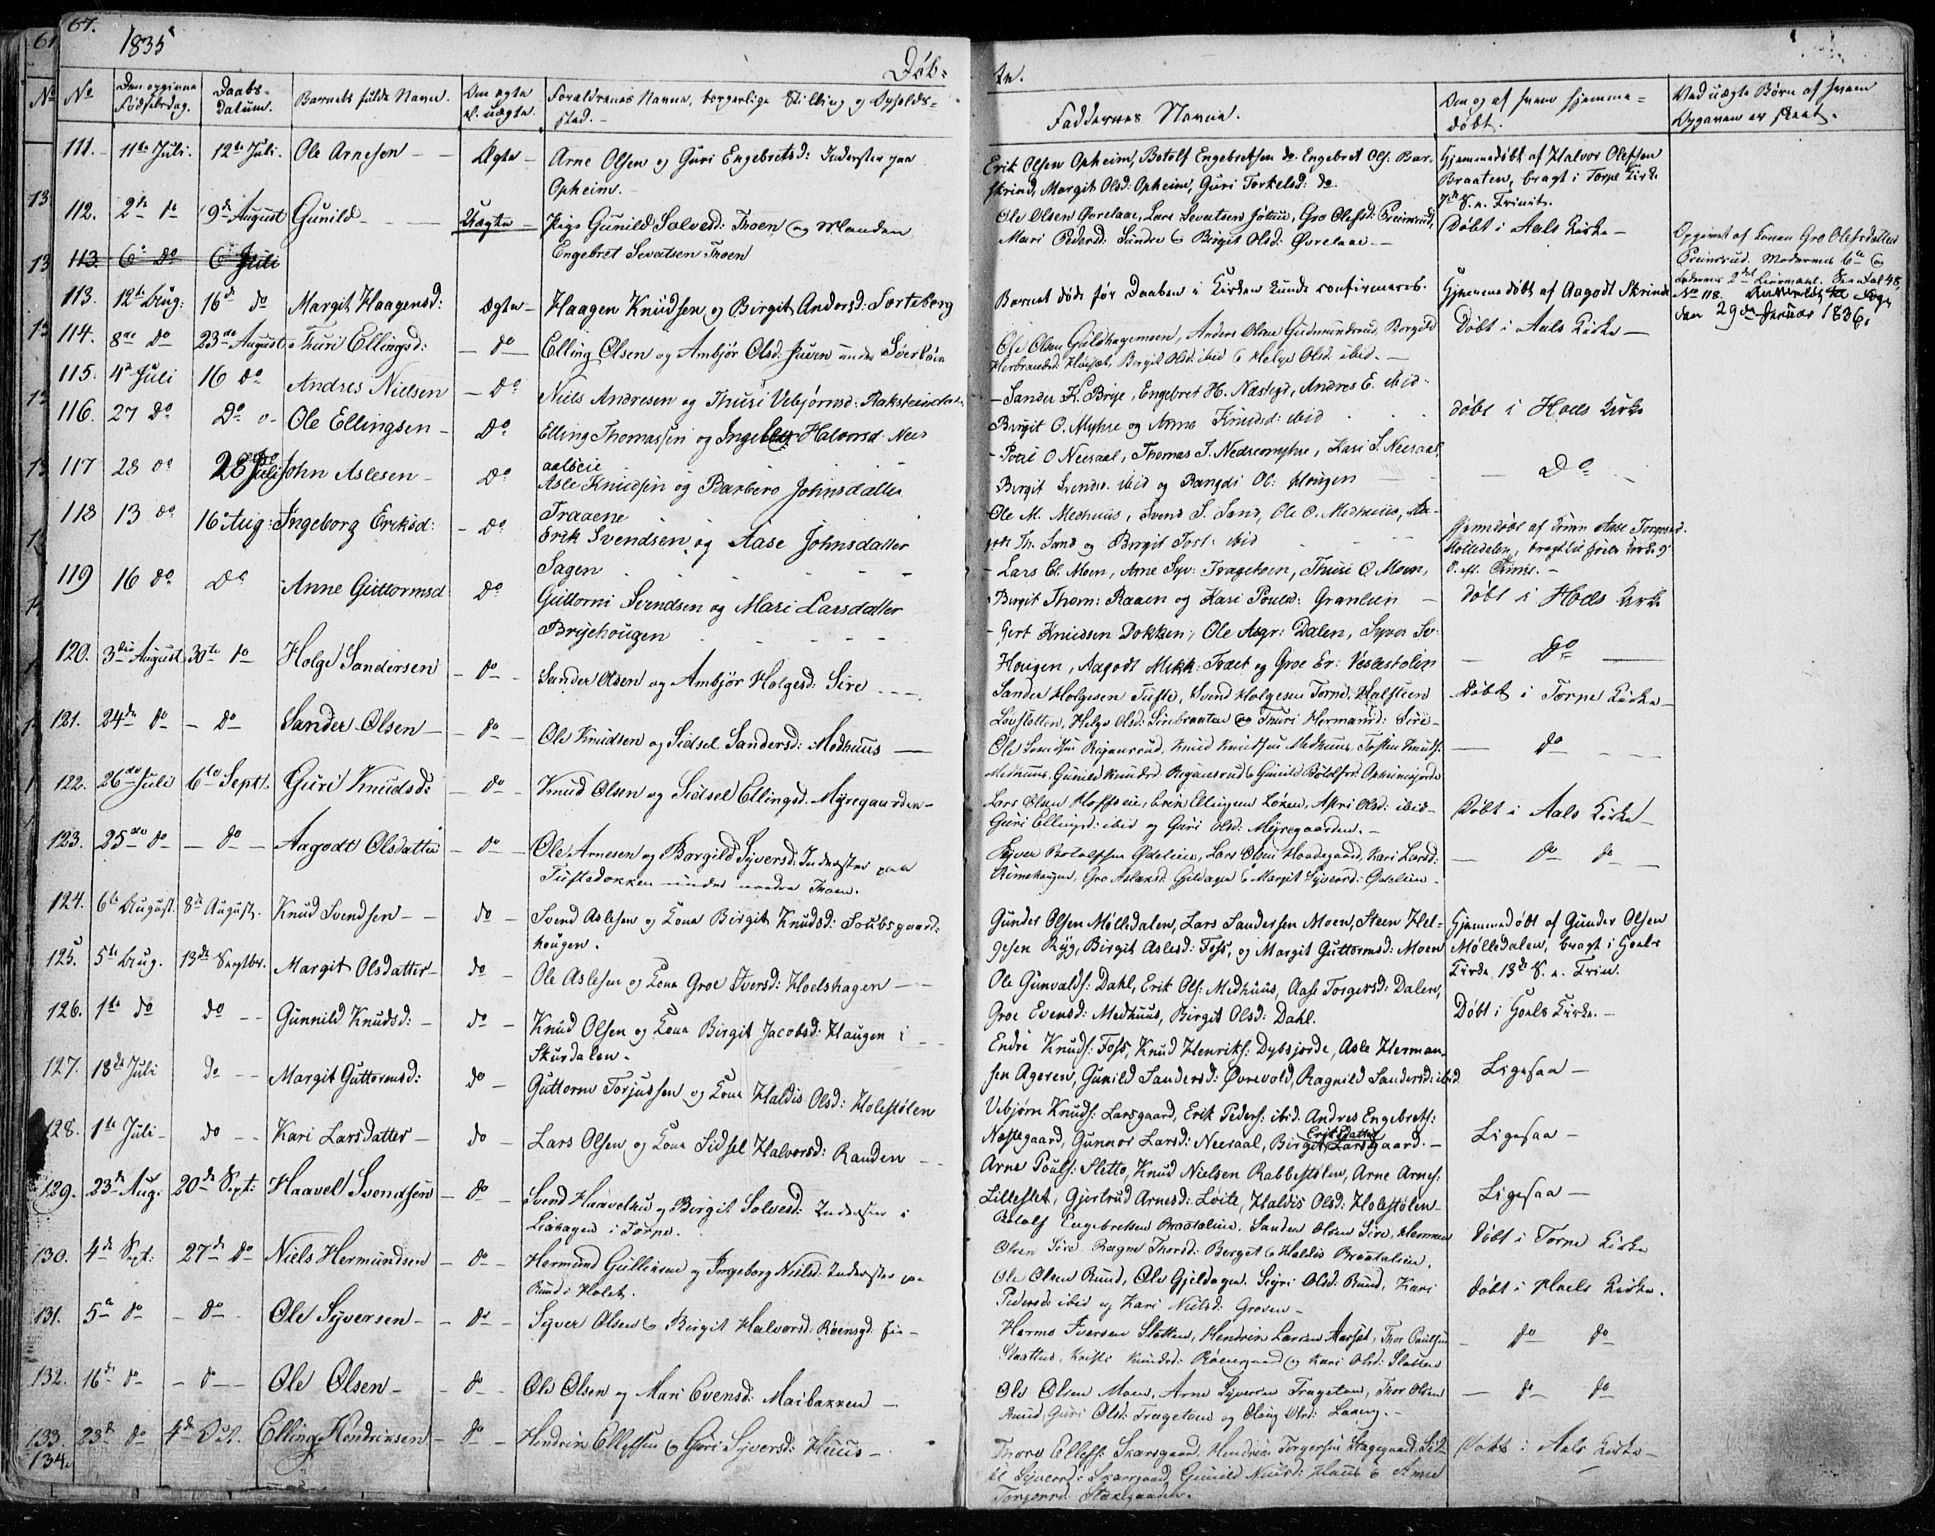 67.
1835
Døb-
te.
No
Den opgivne Fødselsdag.
Daabs-datum.
Barnets fulde Navn.
Om ægte el. uægte.
Forældrenes Navne, borgerlige Stilling og Opholds-sted.
Faddernes Navne.
Om og af hvem hjemme-døbt.
Ved uægte Børn af hvem Opgaven er skeet.
111. 11te Juli. 12te Juli. Ole Arnesen Ægte Arne Olsen og Guri Engebretsd: Inderster paa
Opheim.
Erik Olsen Opheim, Botolf Engebretsen do. Engebret Ols. Bar-
skrind, Margit Olsd: Opheim, Guri Torkelsd: do.
Hjemmedøbt af Halvor Olefsen
Braaten, bragt i Torpe Kirke
7de S. e. Trinit.
112. 2de do 9de August Gunild Uægte Pige Gunild Solvesd: Thoen og Manden
Engebret Sevatsen Thoen
Ole Olsen Øvrelaae, Lars Sevatsen Jøtun, Gro Olefsd: Breimsrud,
Mari Pedersd: Sundre & Birgit Olsd: Øvrelaae
Døbt i Aals Kirke
Opgivet af Konen Gro Olefsdatter
Breimsrud. Moderens 6te og
Faderens 2det Leiermaal.
No 118.
den 29de Januar 1836.
113. 6. do 6 Juli
113. 12te Aug: 16de do Margit Haagensd: Ægte Haagen Knudsen og Birgit Andersd: Sorteberg
Barnet døde før Daaben i Kirken kunde confirmeres.
Hjemmedøbt af Aagodt Skrinde
114. 8de do 23de August Thuri Ellingsd: do Elling Olsen og Ambjør Olsd: Juven under
Ole Olsen Guldhagemoen, Anders Olsen Gudmundsrud, Borgild
Herbrandsd: Birgit Olsd: ibid & Helge Olsd: ibid.
Døbt i Aals Kirke
115. 4de Juli 16 do Andres Nielsen Do Niels Andresen og Thuri Vebjørnsd:
Sander K. Brye, Engebret H. Næstegd, Andres E. ibid
Birgit O. Myhre og Anne Knudsd: ibid
døbt i Hols Kirke
116. 27 do Do Ole Ellingsen Do Elling Thomassen og Ingeborg Halvorsd: Nees
aaleie
Poul O Neesaal, Thomas T. Nedremyhre, Kari T. Neesaal
Birgit Svends. ibid og Rangdi Ol: Hougen
Do
117 28 do 28 Juli John Aslesen Do Asle Knudsen og Barbero Johnsdatter
Traaene
Ole M. Medhuus, Svend S. Sand, Ole O. Medhuus, Aa-
godt Th. Sand og Birgit Tost: ibid
118 13 do 16 Aug: Ingeborg Eriksd: Do Erik Svendsen og Aase Johnsdatter
Sagen
Lars El. Moen, Arne Syv: Tragetoen, Thuri O Moen,
Birgit Thom: Raaen og Kari Poulsd: Granlien
Hjemdøbt af Konen Aase Torgersd.
Mølledalen, bragt til Hols Kirke 9
S. eft. Trinit.
119 16 do Do Anne Guttormsd Do Guttorm Svendsen og Mari Larsdatter
Bryehougen
Gert Knudsen Dokken, Ole Asgr: Dalen, Syver Sv.
Hougen, Aagodt Mikk: Træet og Groe Er: Veslestølen
døbt i Hols Kirke
Do
120. 3die August 30te do Holge Sandersen do Sander Olsen og Ambjør Holgesd: Sire
Sander Holgesen Tufte, Svend Holgesen Torpe, Halsteen
Løvslotten, Helge Olsd: Sirebraaten og Thuri Hermansd: Sire
Døbt i Torpe Kirke
121. 24de do do Sander Olsen do Ole Knudsen og Sidsel Sandersd: Medhuus
Knud Knutsen Medhuus, Torsten Knuts:
Medhuus, Gunild Knudsd. & Gunild Botolfsd: Opheimsjorde
do
122. 26de Juli 6te Sept. Guri Knudsd: do Knud Olsen og Sidsel Ellingsd. Myregaarden
Lars Olsen Hoffseie, Erik Ellingsen Løken, Astri Olsd: ibid
Guri Ellingsd: ibid og Guri Olsd: Myregaarden.
Døbt i Aals Kirke
123. 25de do do Aagodt Olsdatter do Ole Arnesen og Borgild Syversd: Inderster paa
Tuftedokken under nordre Thoen.
Syver Botolfsen Ødelien, Lars Olsen Haadegaard, Kari Larsd:
Rimehaugen, Gro Aslaksd: Gjeldagen & Margit Syversd: Ødelien
do do
124. 6te August 8de August. Knud Svendsen do Svend Aslesen og Kone Birgit Knudsd: Solbsgaard-
hougen.
Gunder Olsen Mølledalen, Lars Sandersen Moen, Steen Hel-
gesen Ryg, Birgit Aslesd: Foss, og Margit Guttormsd: Moen
Hjemmedøbt af Gunder Olsen
Mølledalen, bragt i Hols
Kirke 13de S. e. Trin.
125. 5te Aug. 13de Septbr. Margit Olsdatter do Ole Aslesen og Kone Groe Iversd: Hoelshagen
Ole Gunvalds: Dahl, Erik Ols: Medhuus, Aase Torgersd: Dalen,
Groe Evensd: Medhuus, Birgit Olsd: Dahl.
Døbt i Hols Kirke.
126. 1te do do Gunnild Knudsd: do Knud Olsen og Kone Birgit Jacobsd: Haugen i
Skurdalen.
Endre Knuds: Foss, Knud Henriks: Dybsjorde, Asle Herman-
sen Ageren, Gunild Sandersd: Øvrevold, Ragnild Sandersd: ibid
Ligesaa
127. 18de Juli do Margit Guttormsd: do Guttorm Torjussen og Kone Haldis Olsd: Holestølen
Vebjørn Knuds: Larsgaard, Erik Peders: ibid. Andres Engebrets:
Næstegaard, Gunnor Larsd: Neesaal, Birgit Eriksdatter Larsgaard.
Ligesaa
128. 1te Juli do Kari Larsdatter do Lars Olsen og Kone Sidsel Halvorsd: Randen
Arne Pouls: Sletto, Knud Nielsen Rabbestølen, Arne Arnes:
Lilleslet, Gjertrud Arnesd: Løite, Haldis Olsd: Holestølen
Ligesaa
129. 23de Aug. 20de Sept: Haavel Svendsen do Svend Haavelsen og Birgit Solvesd: Inderster i
Liahagen i Torpe.
Botolf Engebretsen Braatalien, Sander Olsen Sire, Herman
Olsen Sire, Ragne Thorsd: Berget & Haldis Braatalien.
Døbt i Torpe Kirke
130. 4de Sept: 27de do Niels Hermundsen do Hermund Gulleiksen og Ingeborg Nielsd: Inderster paa
Rund i Holet.
Ole Olsen Rund, Ole Gjeldagen, Sigri Olsd: Rund, Kari
Pedersd: ibid og Kari Nielsd: Groven
døbt i Hols Kirke.
131. 5te do do Ole Syversen do Syver Olsen & Birgit Halvorsd: Røensgd:
Hermo Iversen Slotten, Hendrik Larsen Aarset, Thor Paulsen
Slaatten, Kristi Knudsd: Røensgaard og Kari Olsd: Slotten
do do
132. 16de do do Ole Olsen do Ole Olsen og Mari Evensd: Maibakken
Ole Olsen Moen, Arne Syversen Tragetoen, Thor Olsen
Rund, Guri Olsd: Tragetoen og Olsd:
do do
133. 23de do 4de Oct. Elling Hendriksen do Hendrik Ellefsen og Guri Syversd: Huus
Thore Ellefs: Skarsgaard, Hendrik Torgersen Stagegaard, Sid-
sel Syversd: Skarsgaard, Gunild Nielsd: Huus &
Torgersd: Stavegaarden.
Døbt i Aals Kirke
134.